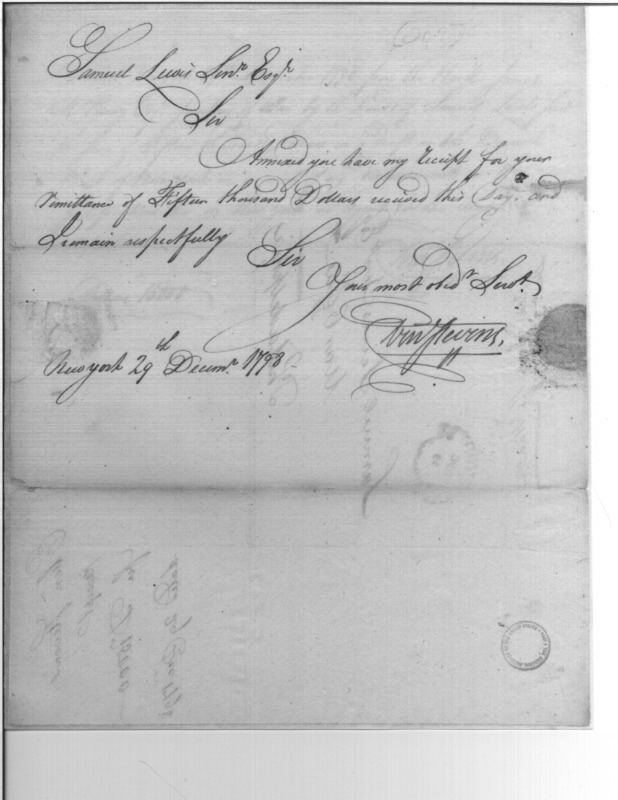 Samuel Lewis Senr. Esqr.
Sir
Annexed you have my receipt for your
remittance of Fifteen thousand Dollars received this Day. and
I remain respectfully
Sir
Your most obedt Servt.
Ebenr Stevens.
New york 29th Decemr. 1798